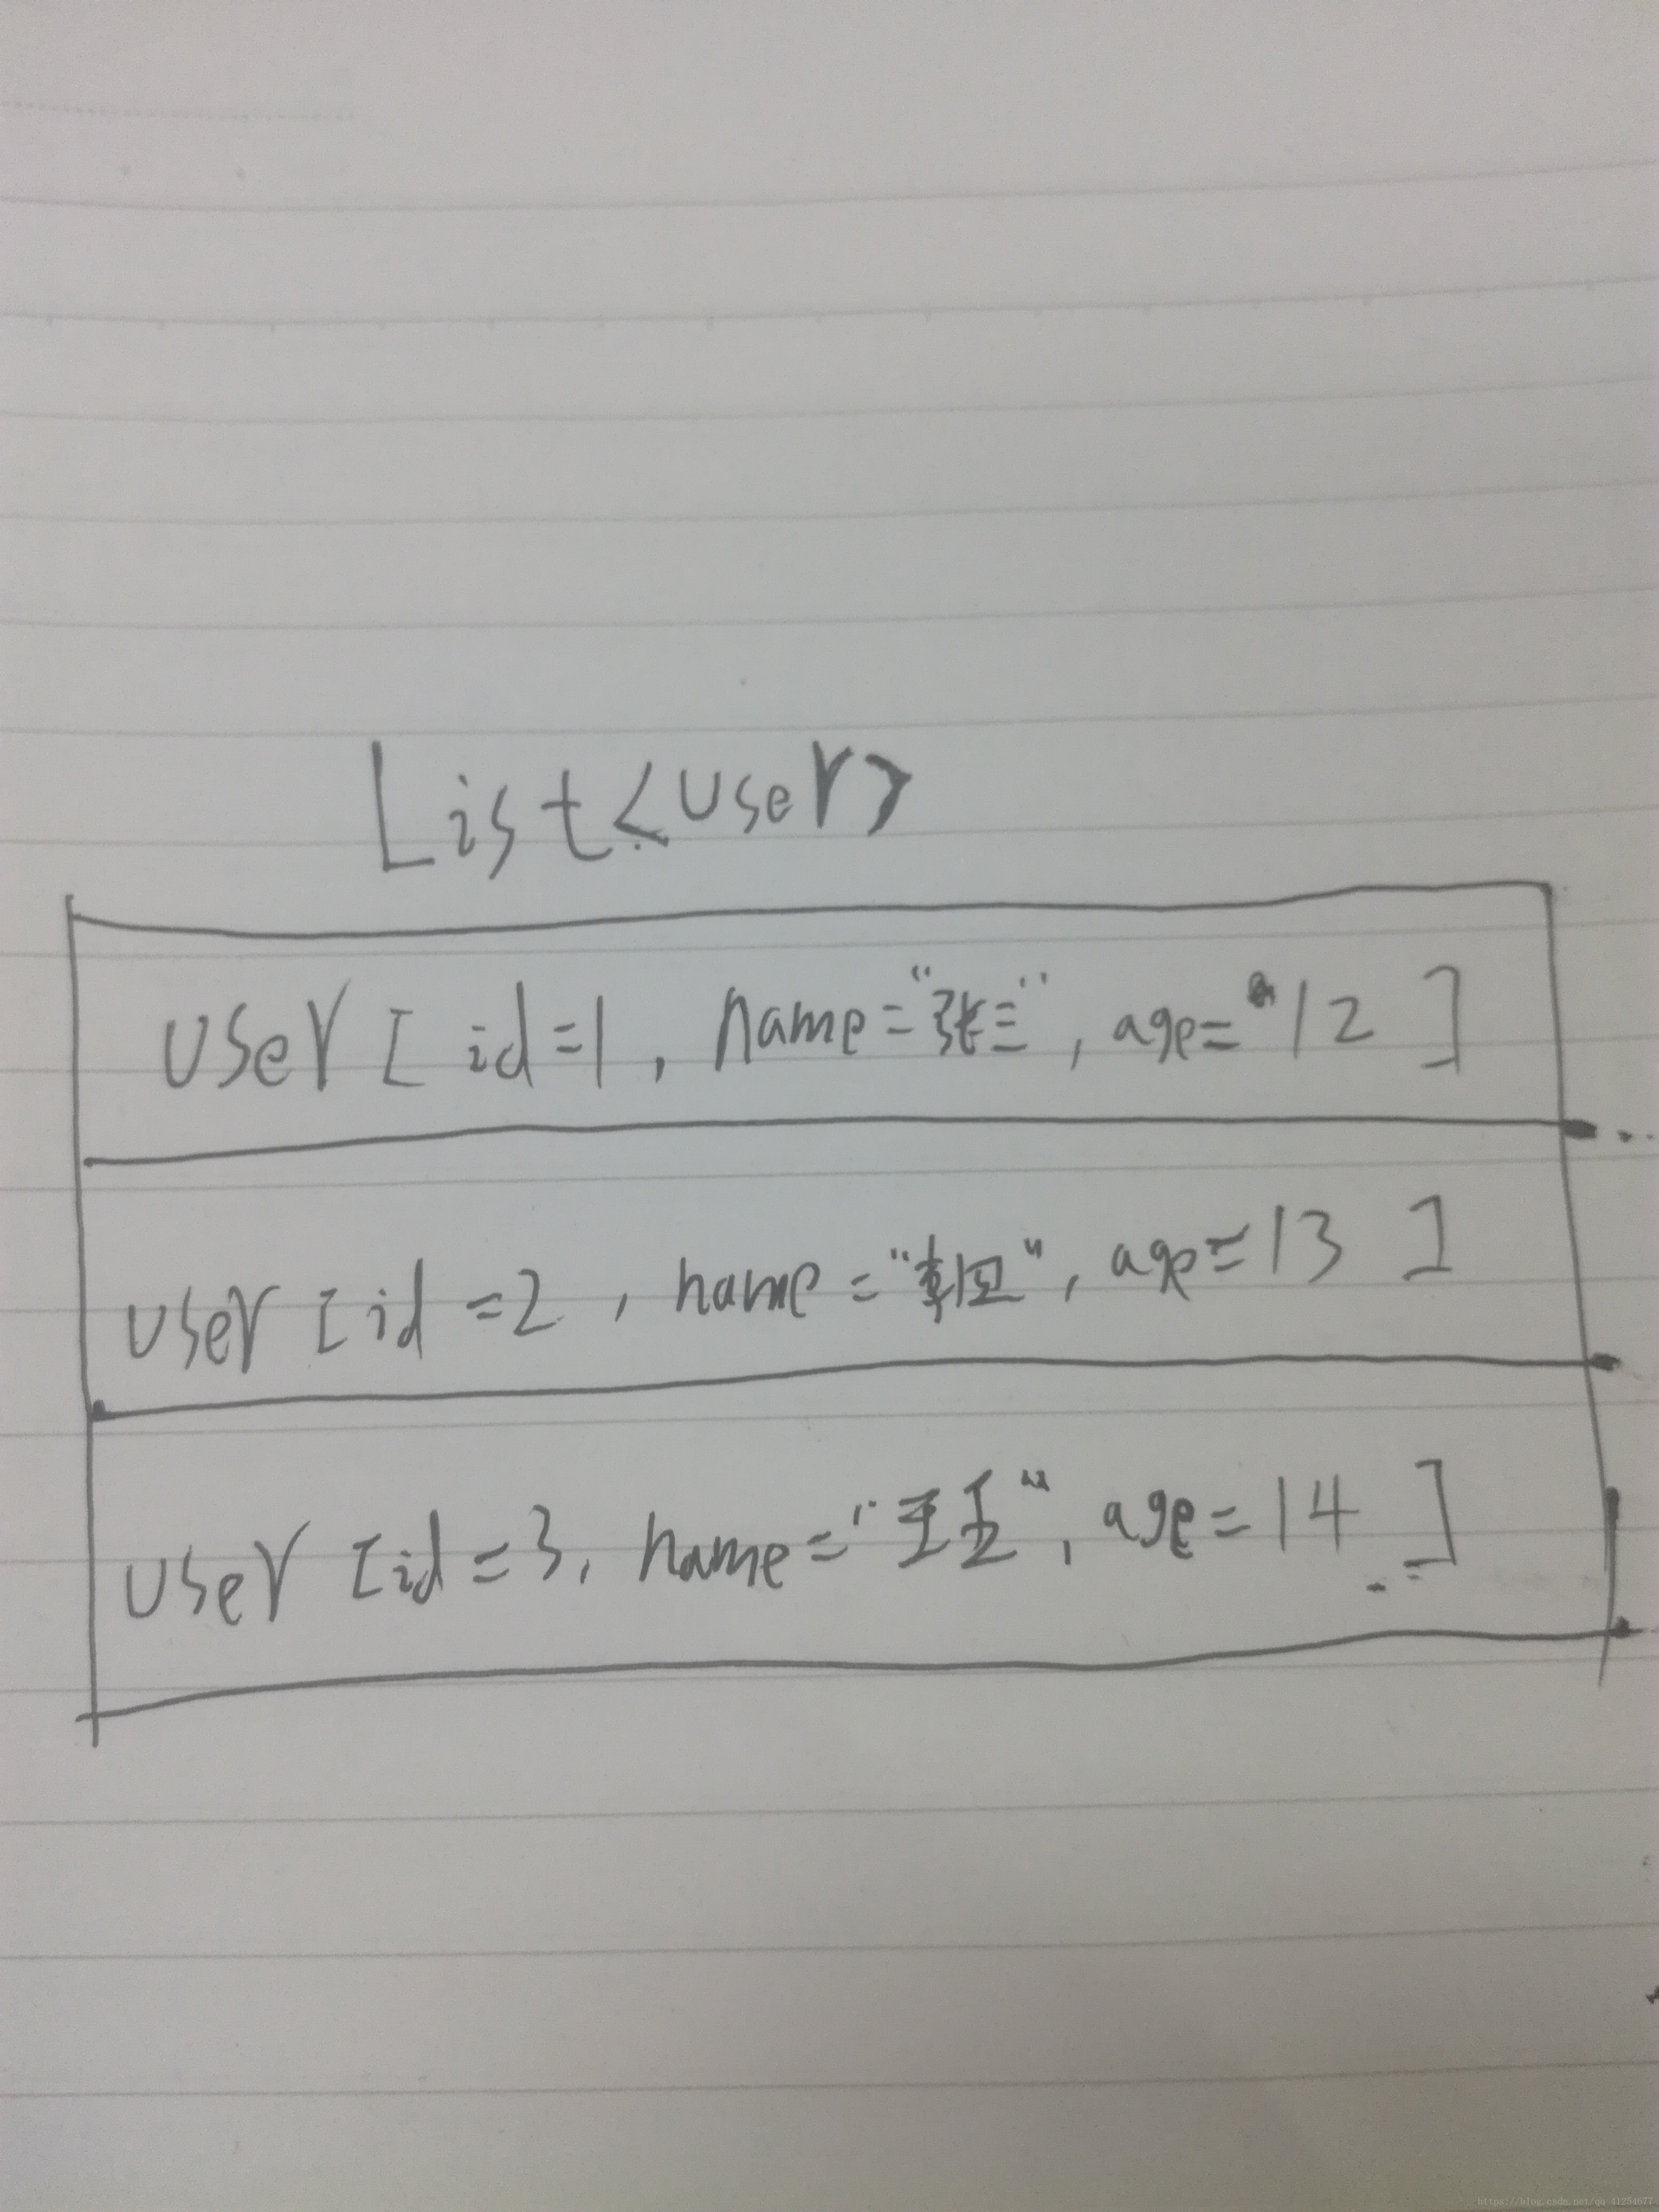 List<User>
user [ id=1, name="张三", age=12 ]
user [ id=2, name=" ", age=13 ]
user [ id=3, name="王五", age=14 ]
https://blog.csdn.net/qq_41254677